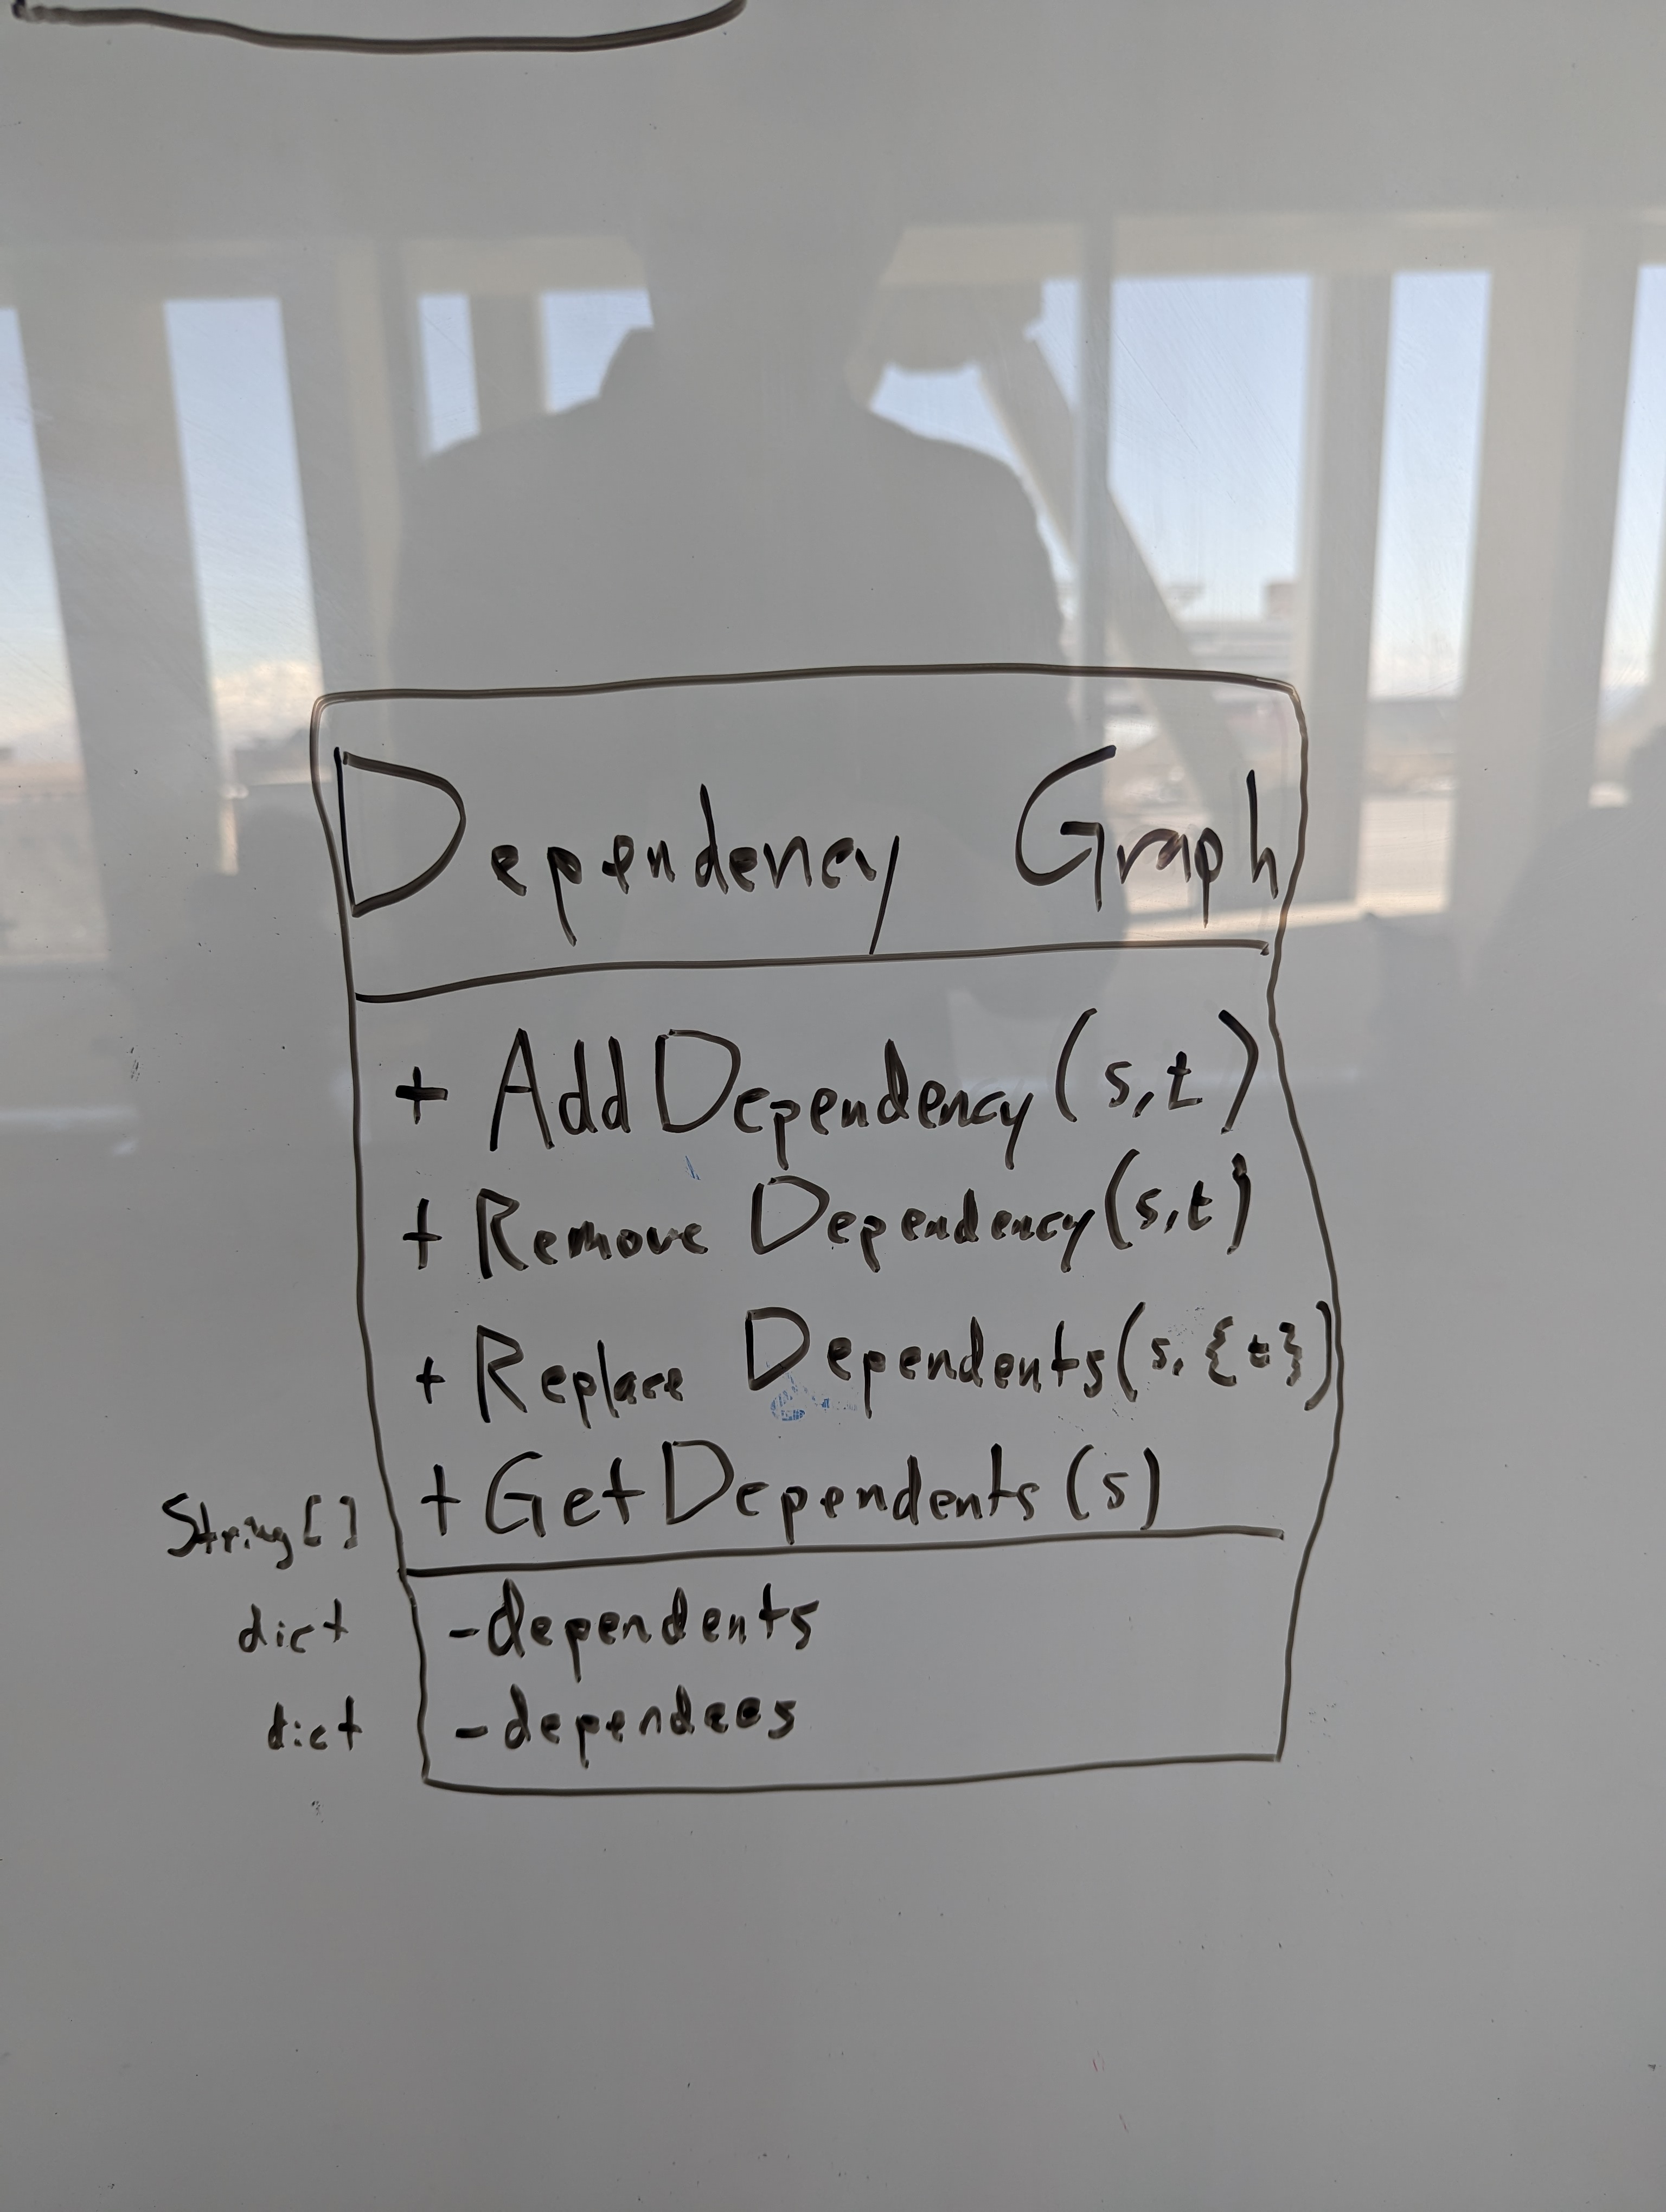 Dependency Graph
+ AddDependency(s,t)
+ Remove Dependency(s,t)
+ Replace Dependents(s,{t})
String[] + GetDependents(s)
dict -dependents
dict -dependees